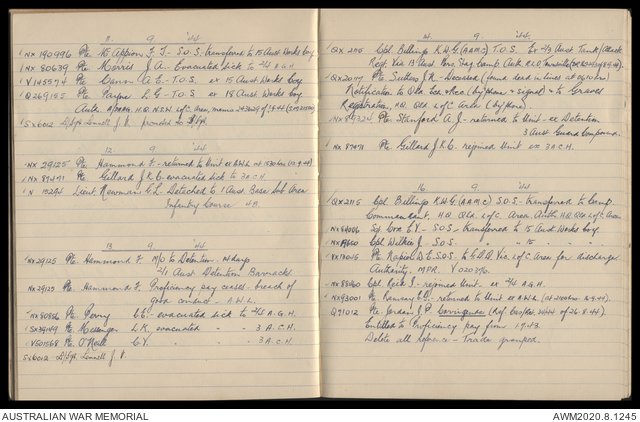 11 9 '44
NX190996 Pte McAppion F J - S.O.S. transferred to 15 Aust Works Coy
NX80639 Pte Morris J A - Evacuated sick to 2/5 A.G.H.
VX145574 Pte Cann A E - T.O.S. ex 15 Aust Works Coy
Q269155 Pte Payne L G - T.O.S. ex 18 Aust Works Coy
Auth H.Q. N.S.W. L of C. Area, memo
SX6012 L/Sgt J V. promoted to S/Sgt
12 9 '44
NX29125 Pte Hammond F - returned to Unit ex A.W.L. at
NX89471 Pte Gillard J R C evacuated sick to 3 A.C.H
N Lieut. Newman G L. Detached to 1 Aust Base Sub Area
Infantry Course 4B
13 9 '44
NX29125 Pte. Hammond F. M/O to Detention. days
2/1 Aust. Detention Barracks
NX29125 Pte Hammond F. Proficiency pay ceases. breach of
good conduct - A.W.L.
NX80856 Pte Perry C E - evacuated sick to 2/5 A.G.H.
SX39149 Pte Messenger L.K. evacuated " - 3 A.C.H.
VX501568 Pte O'Neill C.V. - " - 3 A.C.H
SX6012 - L/Sgt. J V.
14 9 '44
QX2115 Cpl Billings K.W.G. (A.A.M.C) T.O.S. Ex 2/3 Aust Tank/Attack
Regt. Via 13 Aust Pers Stag Camp. Auth.
QX20117 Pte Seekers J R - Deceased. (found dead in lines at 0610 hrs)
Notification to Qld. Ech. Rec. (by phone & signal) & to Graves
Registration, H.Q. Qld. L of C Area (by phone).
NX89324 Pte Stanford A. J - returned to Unit ex Detention
3 Aust Guard Compound.
NX89471 Pte. Gillard J.R.C. rejoined Unit ex 3 A.C.H.
16 9 '44
QX2115 Cpl Billings K.W.G (A.A.M.C) S.O.S. - transferred to Camp.
Commandant, H.Q. Qld L of C. Area. Auth H.Q. Qld. L of C. Area
NX54006 Sgt Cox E.V. - S.O.S - transferred to 15 Aust Works Coy
Cpl Walker J - S.O.S. " " 15 " "
NX79015 Pte Rapson D E. S.O.S - to G.D.D. Via L of C. Area for discharge
Authority M.P.R. V
NX88460 Cpl Reed J - rejoined Unit ex 2/5 A.G.H.
NX93001 Pte Ramsay E L - returned to Unit ex A.W.L. (at 2140 hrs 8.9.44).
Q91012 Pte Jordan J P Corrigendum (Ref. of 26.8.44).
Entitled to Proficiency pay from 1.9.43.
Delete all reference - Trade grouped.
AUSTRALIAN WAR MEMORIAL
AWM2020.8.1245